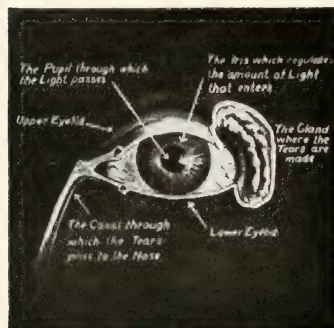 The Pupil through which
the Light passes
The Iris which regulates
the amount of Light
that enters
Upper Eyelid
The Gland
where the
Tears are
made
The Canal through
which the Tears
pass to the Nose
Lower Eyelid